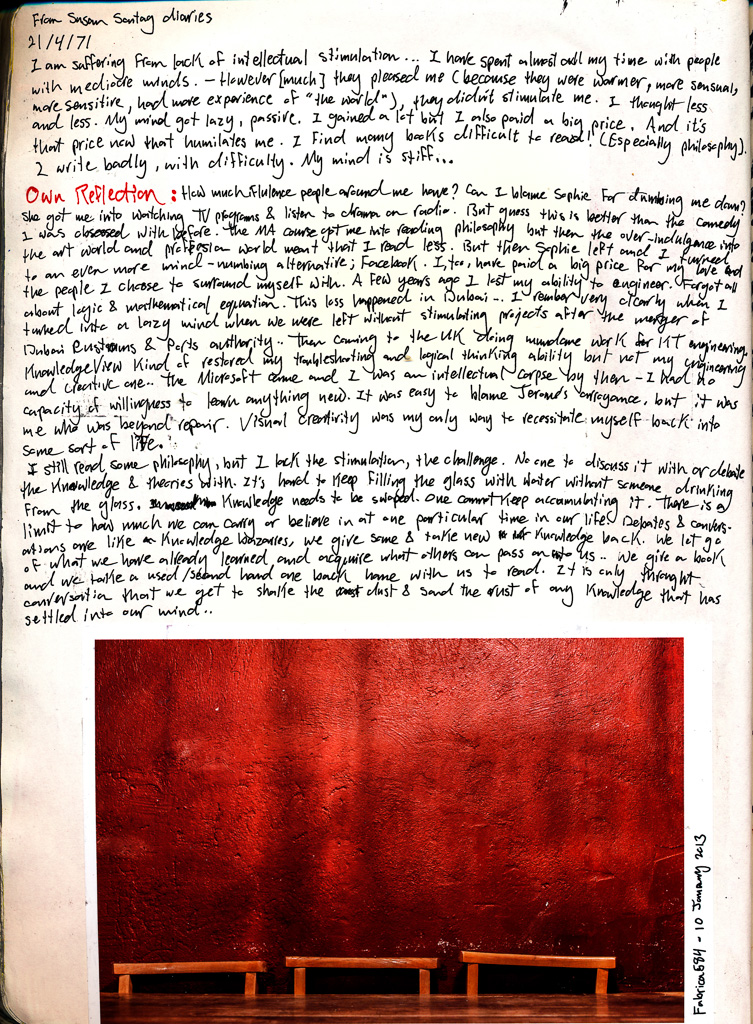 From Susan Sontag diaries
21/4/71
I am suffering from lack of intellectual stimulation... I have spent almost all my time with people
with mediocre minds. - However [much] they pleased me (because they were warmer, more sensual,
more sensitive, had more experience of "the world"), they didn't stimulate me. I thought less
and less. My mind got lazy, passive. I gained a lot but I also paid a big price. And it's
that price now that humiliates me. I find many books difficult to read! (Especially philosophy).
I write badly, with difficulty. My mind is stiff...
Own Reflection: How much influence people around me have? Can I blame Sophie for dumbing me down?
She got me into watching TV programs & listen to drama on radio. But guess this is better than the comedy
I was obsessed with before. The MA course got me into reading philosophy but then the over-indulgence into
the art world and profession world meant that I read less. But then Sophie left and I turned
to an even more mind-numbing alternative; Facebook. I, too, have paid a big price for my love and
the people I choose to surround myself with. A few years ago I lost my ability to engineer. Forgot all
about logic & mathematical equation. This loss happened in Dubai... I rember very clearly when I
turned into a lazy mind when we were left without stimulating projects after the merger of
Dubai Customs & Ports authority.. Then coming to the UK doing mundane work for KT engineering.
KnowledgeView kind of restored my troubleshooting and logical thinking ability but not my engineering
and creative one.. The Microsoft came and I was an intellectual corpse by then - I had no
capacity of willingness to learn anything new. It was easy to blame Jerome's arrogance. but it was
me who was beyond repair. Visual creativity was my only way to recessitate myself back into
some sort of life.
I still read some philosphy, but I lack the stimulation, the challenge. No one to discuss it with or debate
the knowledge & theories with. It's hard to keep filling the glass with water without someone drinking
from the glass. Knowledge needs to be swaped. One cannot keep accumulating it. There is a
limit to how much we can carry or believe in at one particular time in our life. Debates & convers-
ations are like Knowledge bazarres, we give some & take new Knowledge back. We let go
of what we have already learned and acquire what others can pass on into us.. We give a book
and we take a used/second hand one back home with us to read. It is only, throught
conversation that we get to shake the dust & sand the crust of any Knowledge that has
settled into our mind..
Fabrica584 - 10 January 2013